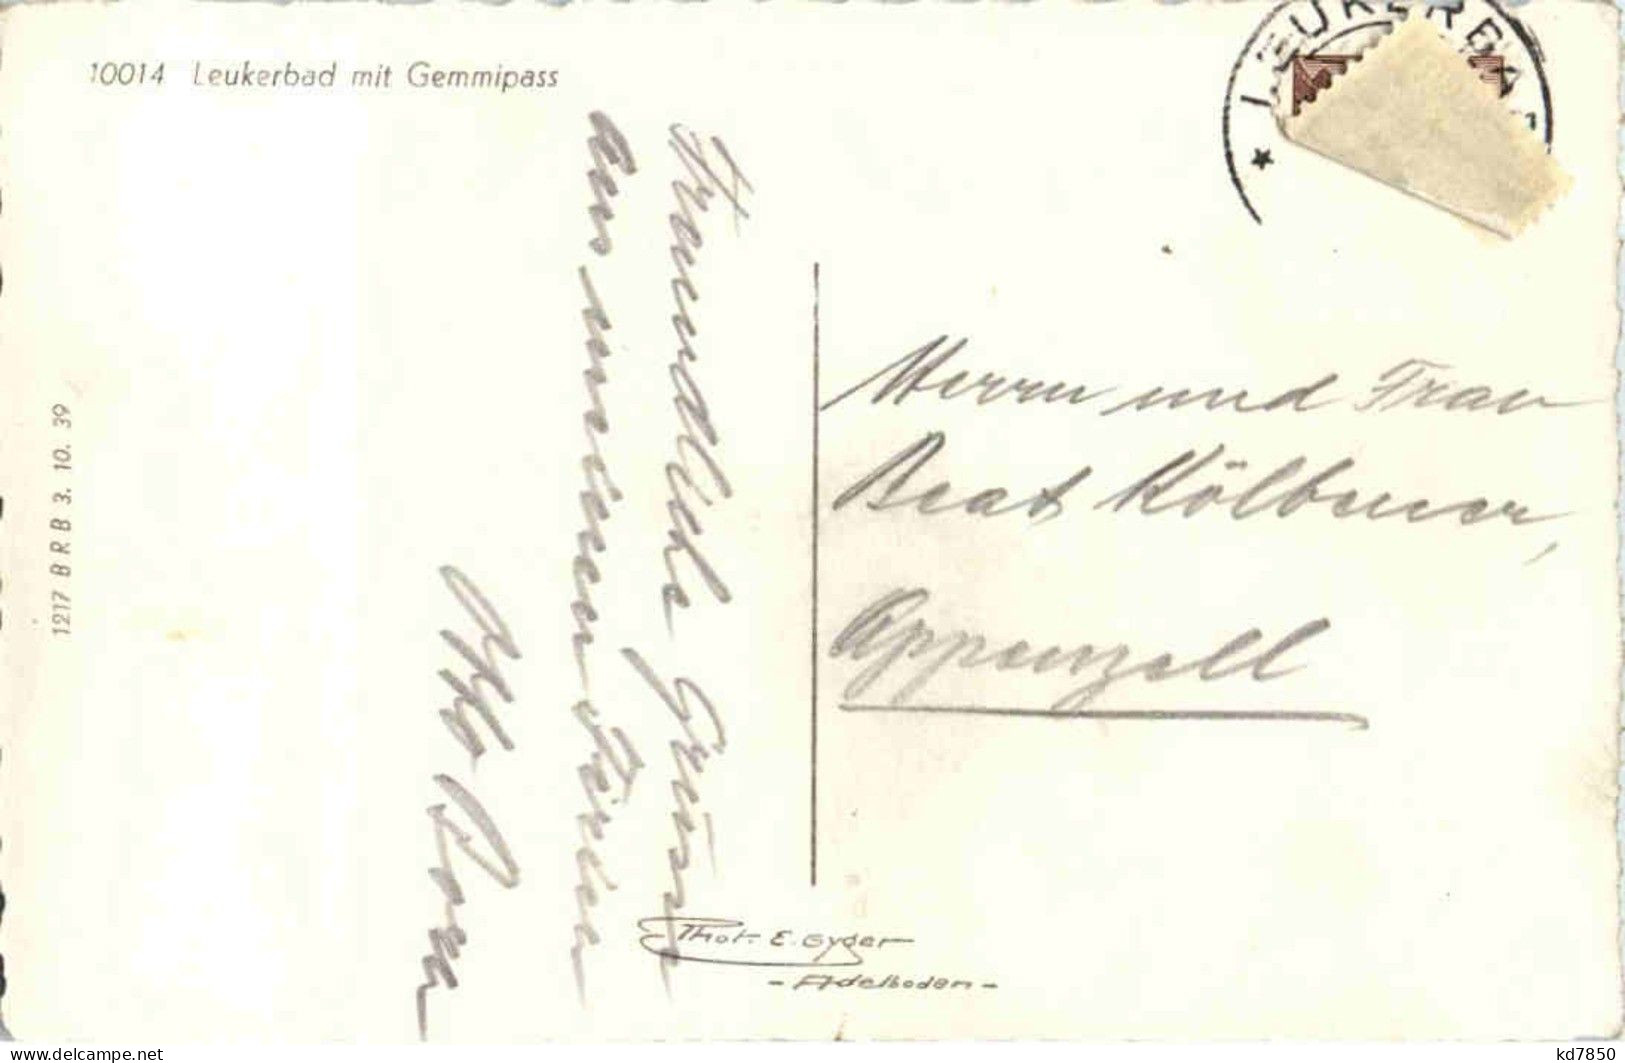 10014 Leukerbad mit Gemmipass
LEUKERBAD
Freundliche Grüsse
aus unseren Ferien
Dora
1217 BRB 3. 10. 39
Herrn und Frau
Beat Kölbener,
Appenzell
Phot. E. Gyger
- Adelboden -
delcampe.net
kd7850